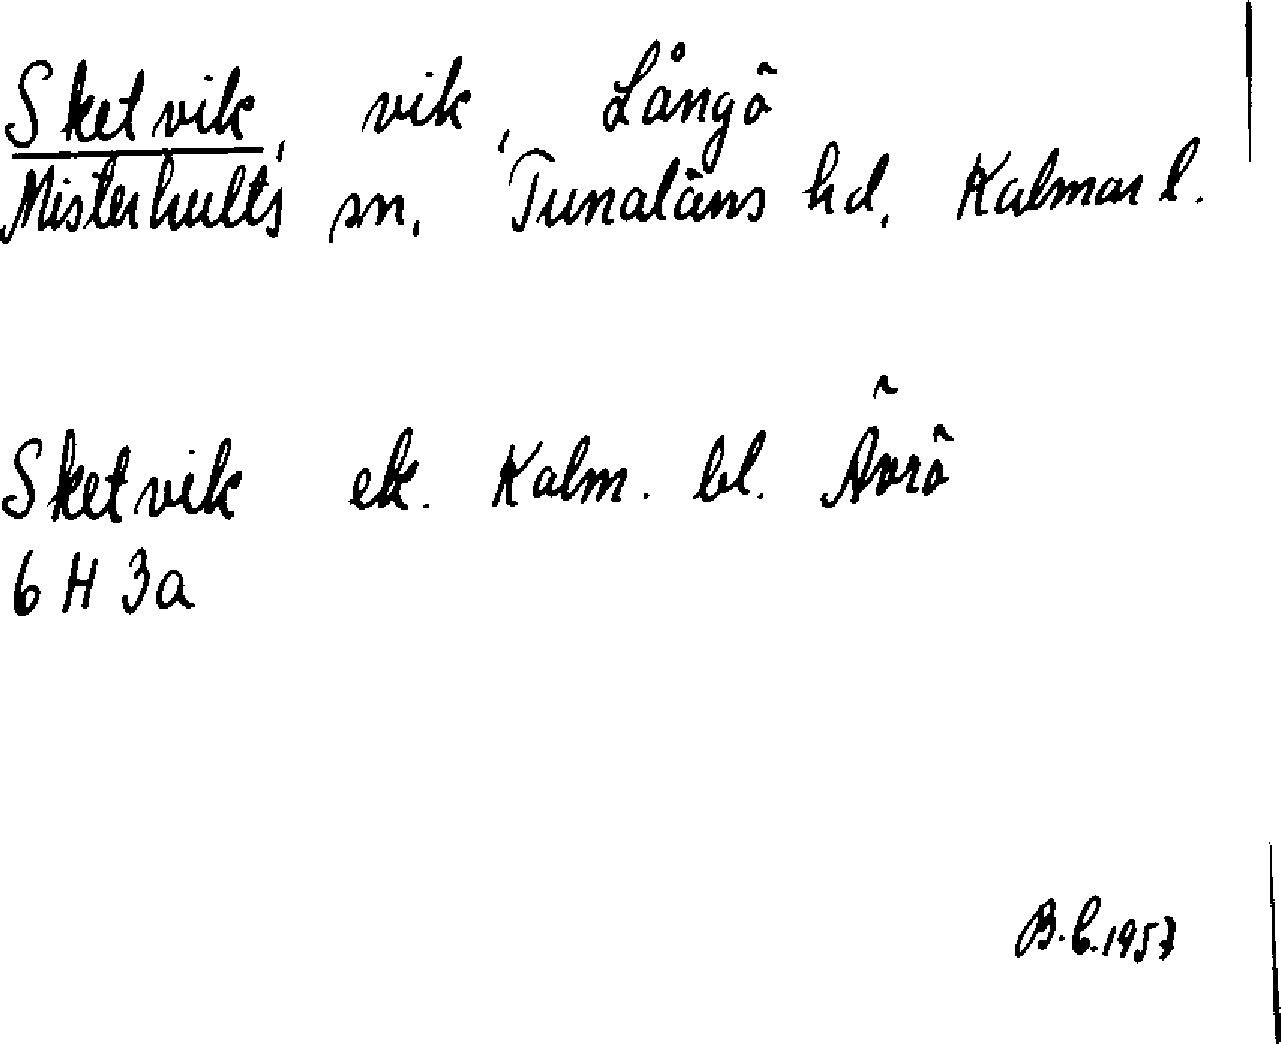 Sketvik, vik, Långö
Misterhults sn, Tunaläns hd, Kalmar l.
Sketvik ek. Kalm. bl. Ävrö
6 H 3a
B.C. 1957